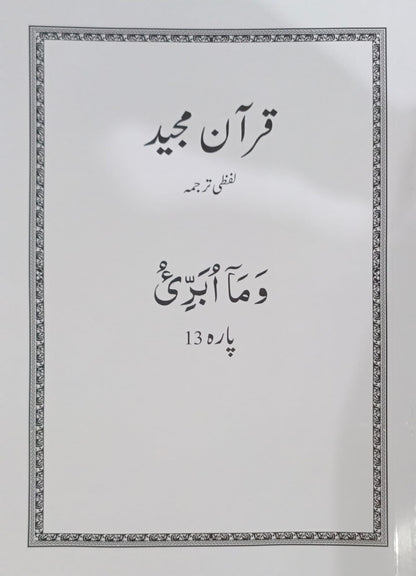 قرآن مجید
لفظی ترجمہ
وَمَآ اُبَرِّئُ
پارہ 13